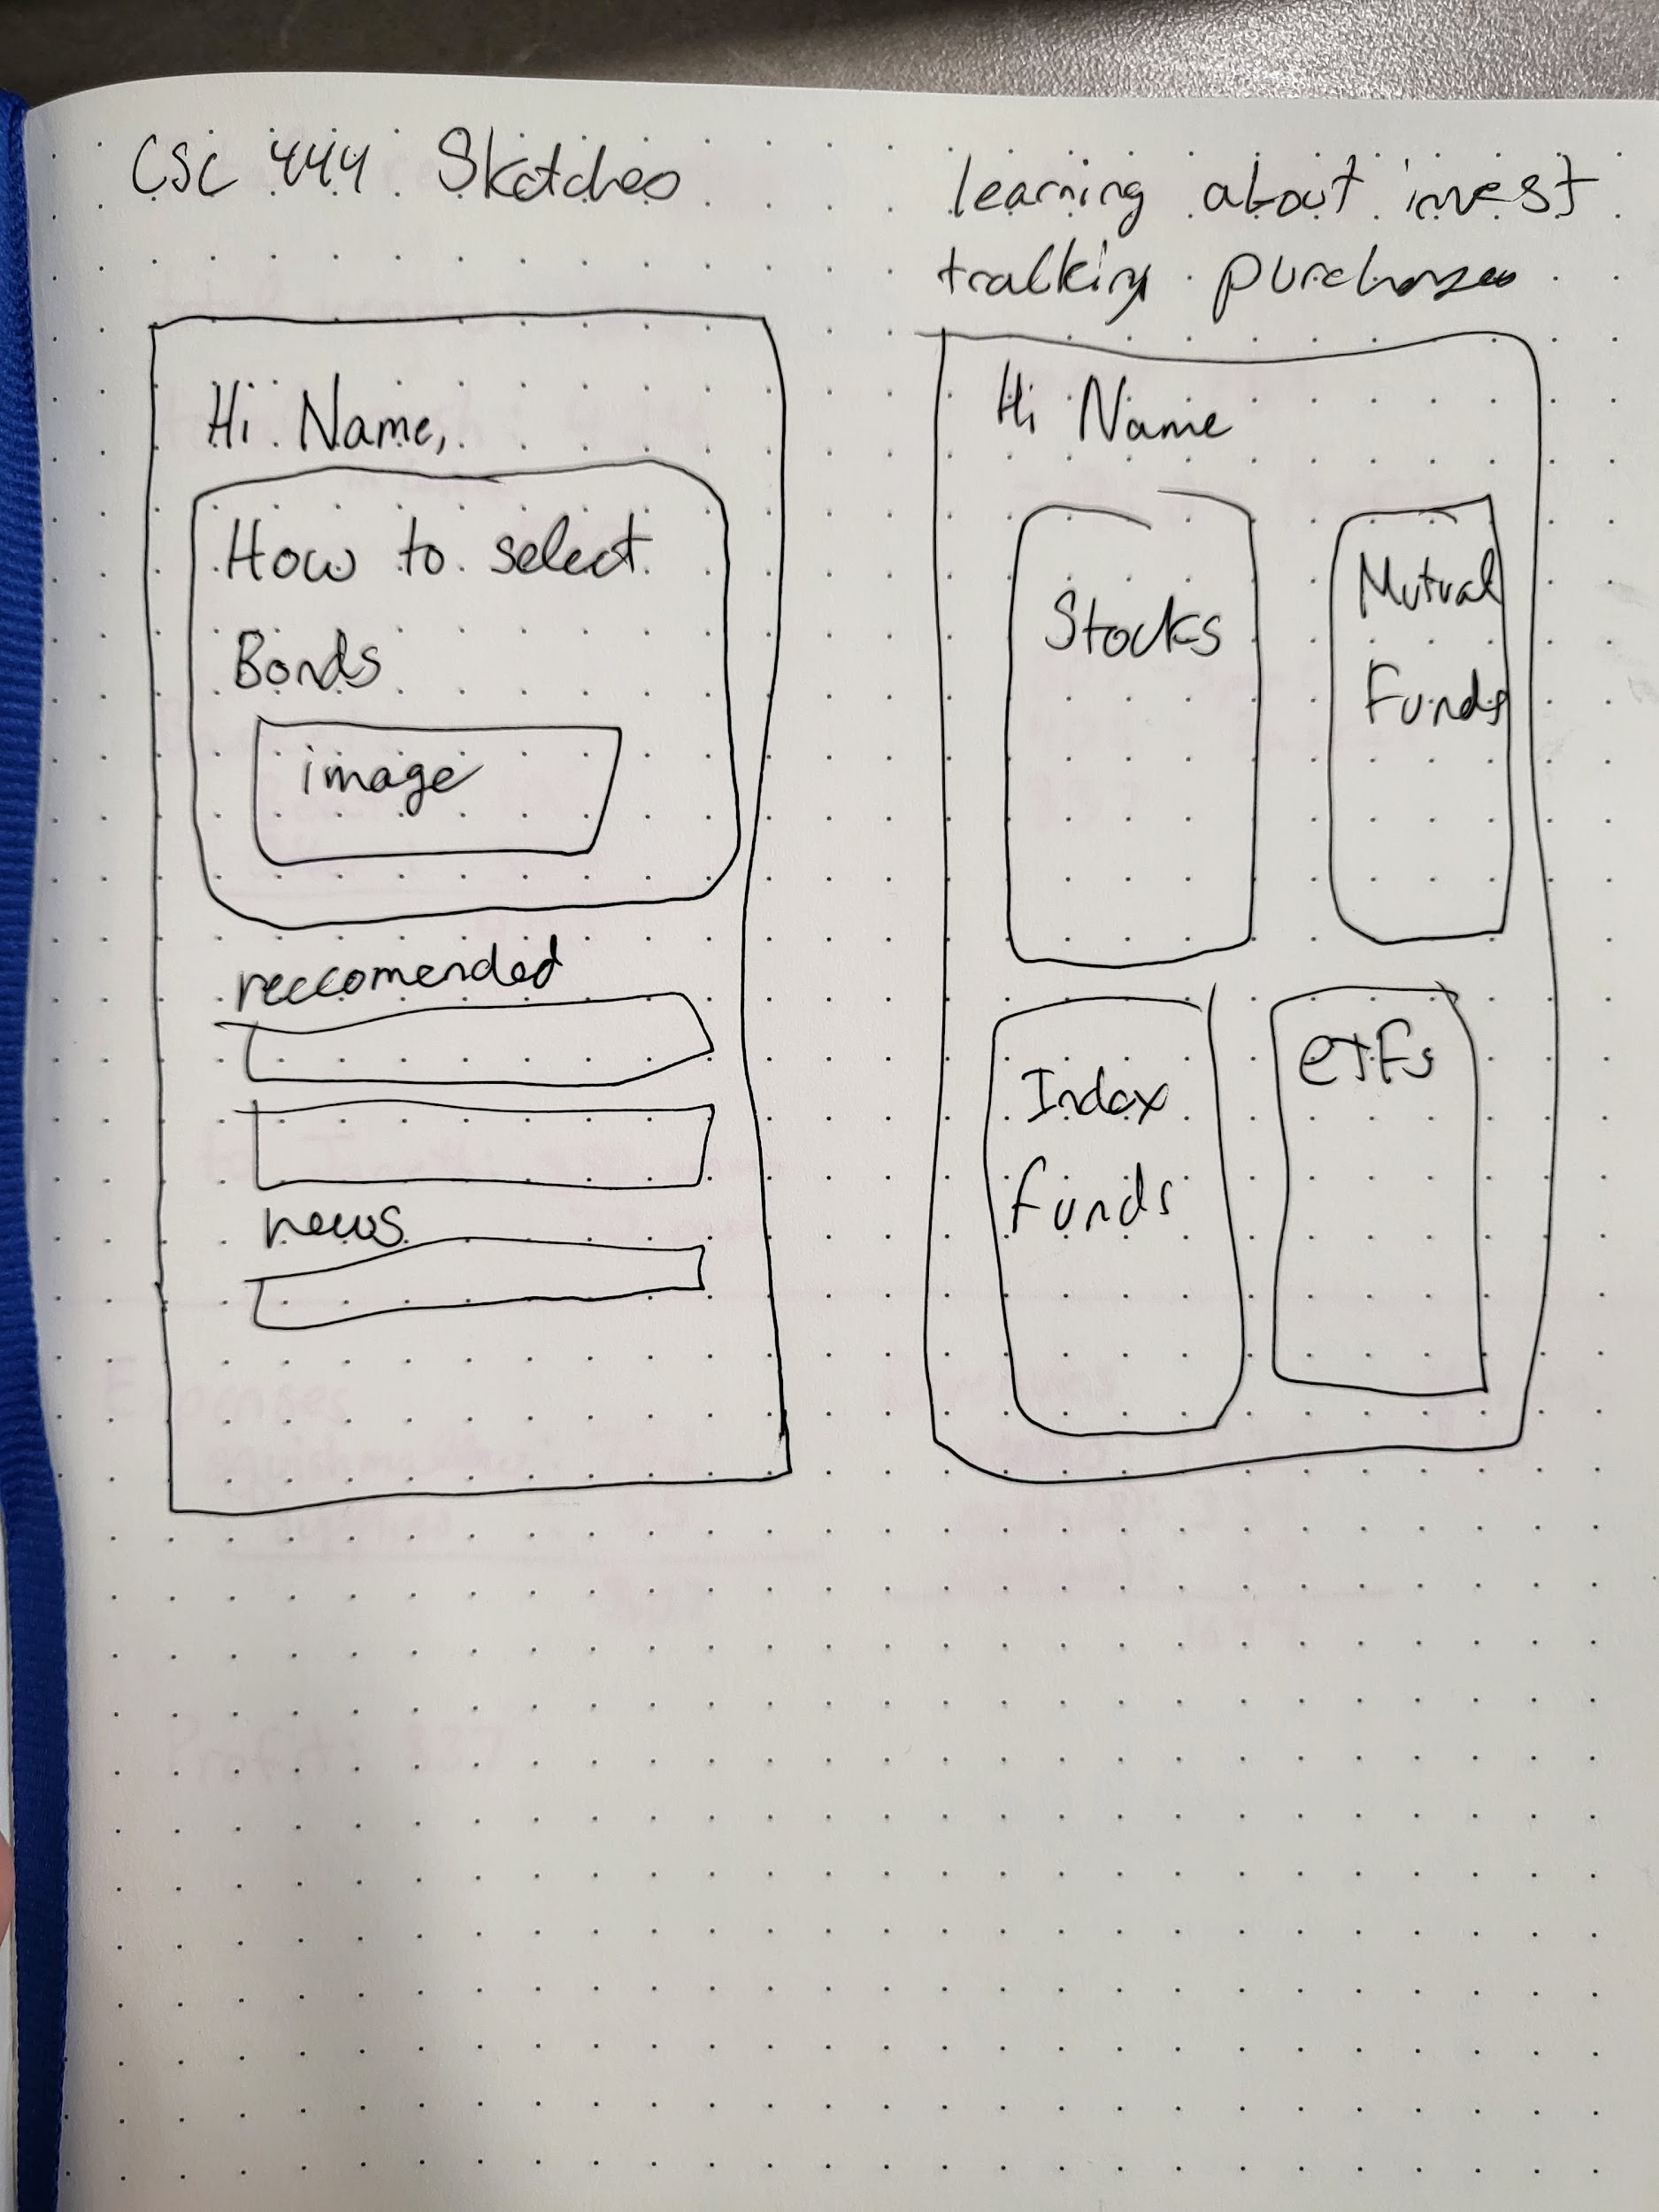 CSC 444 Sketches
learning about invest
tracking purchases
Hi Name,
How to select
Bonds
image
reccomended
news
Hi Name
Stocks
Mutual
Funds
Index
funds
eTFs
Expenses
Profit: